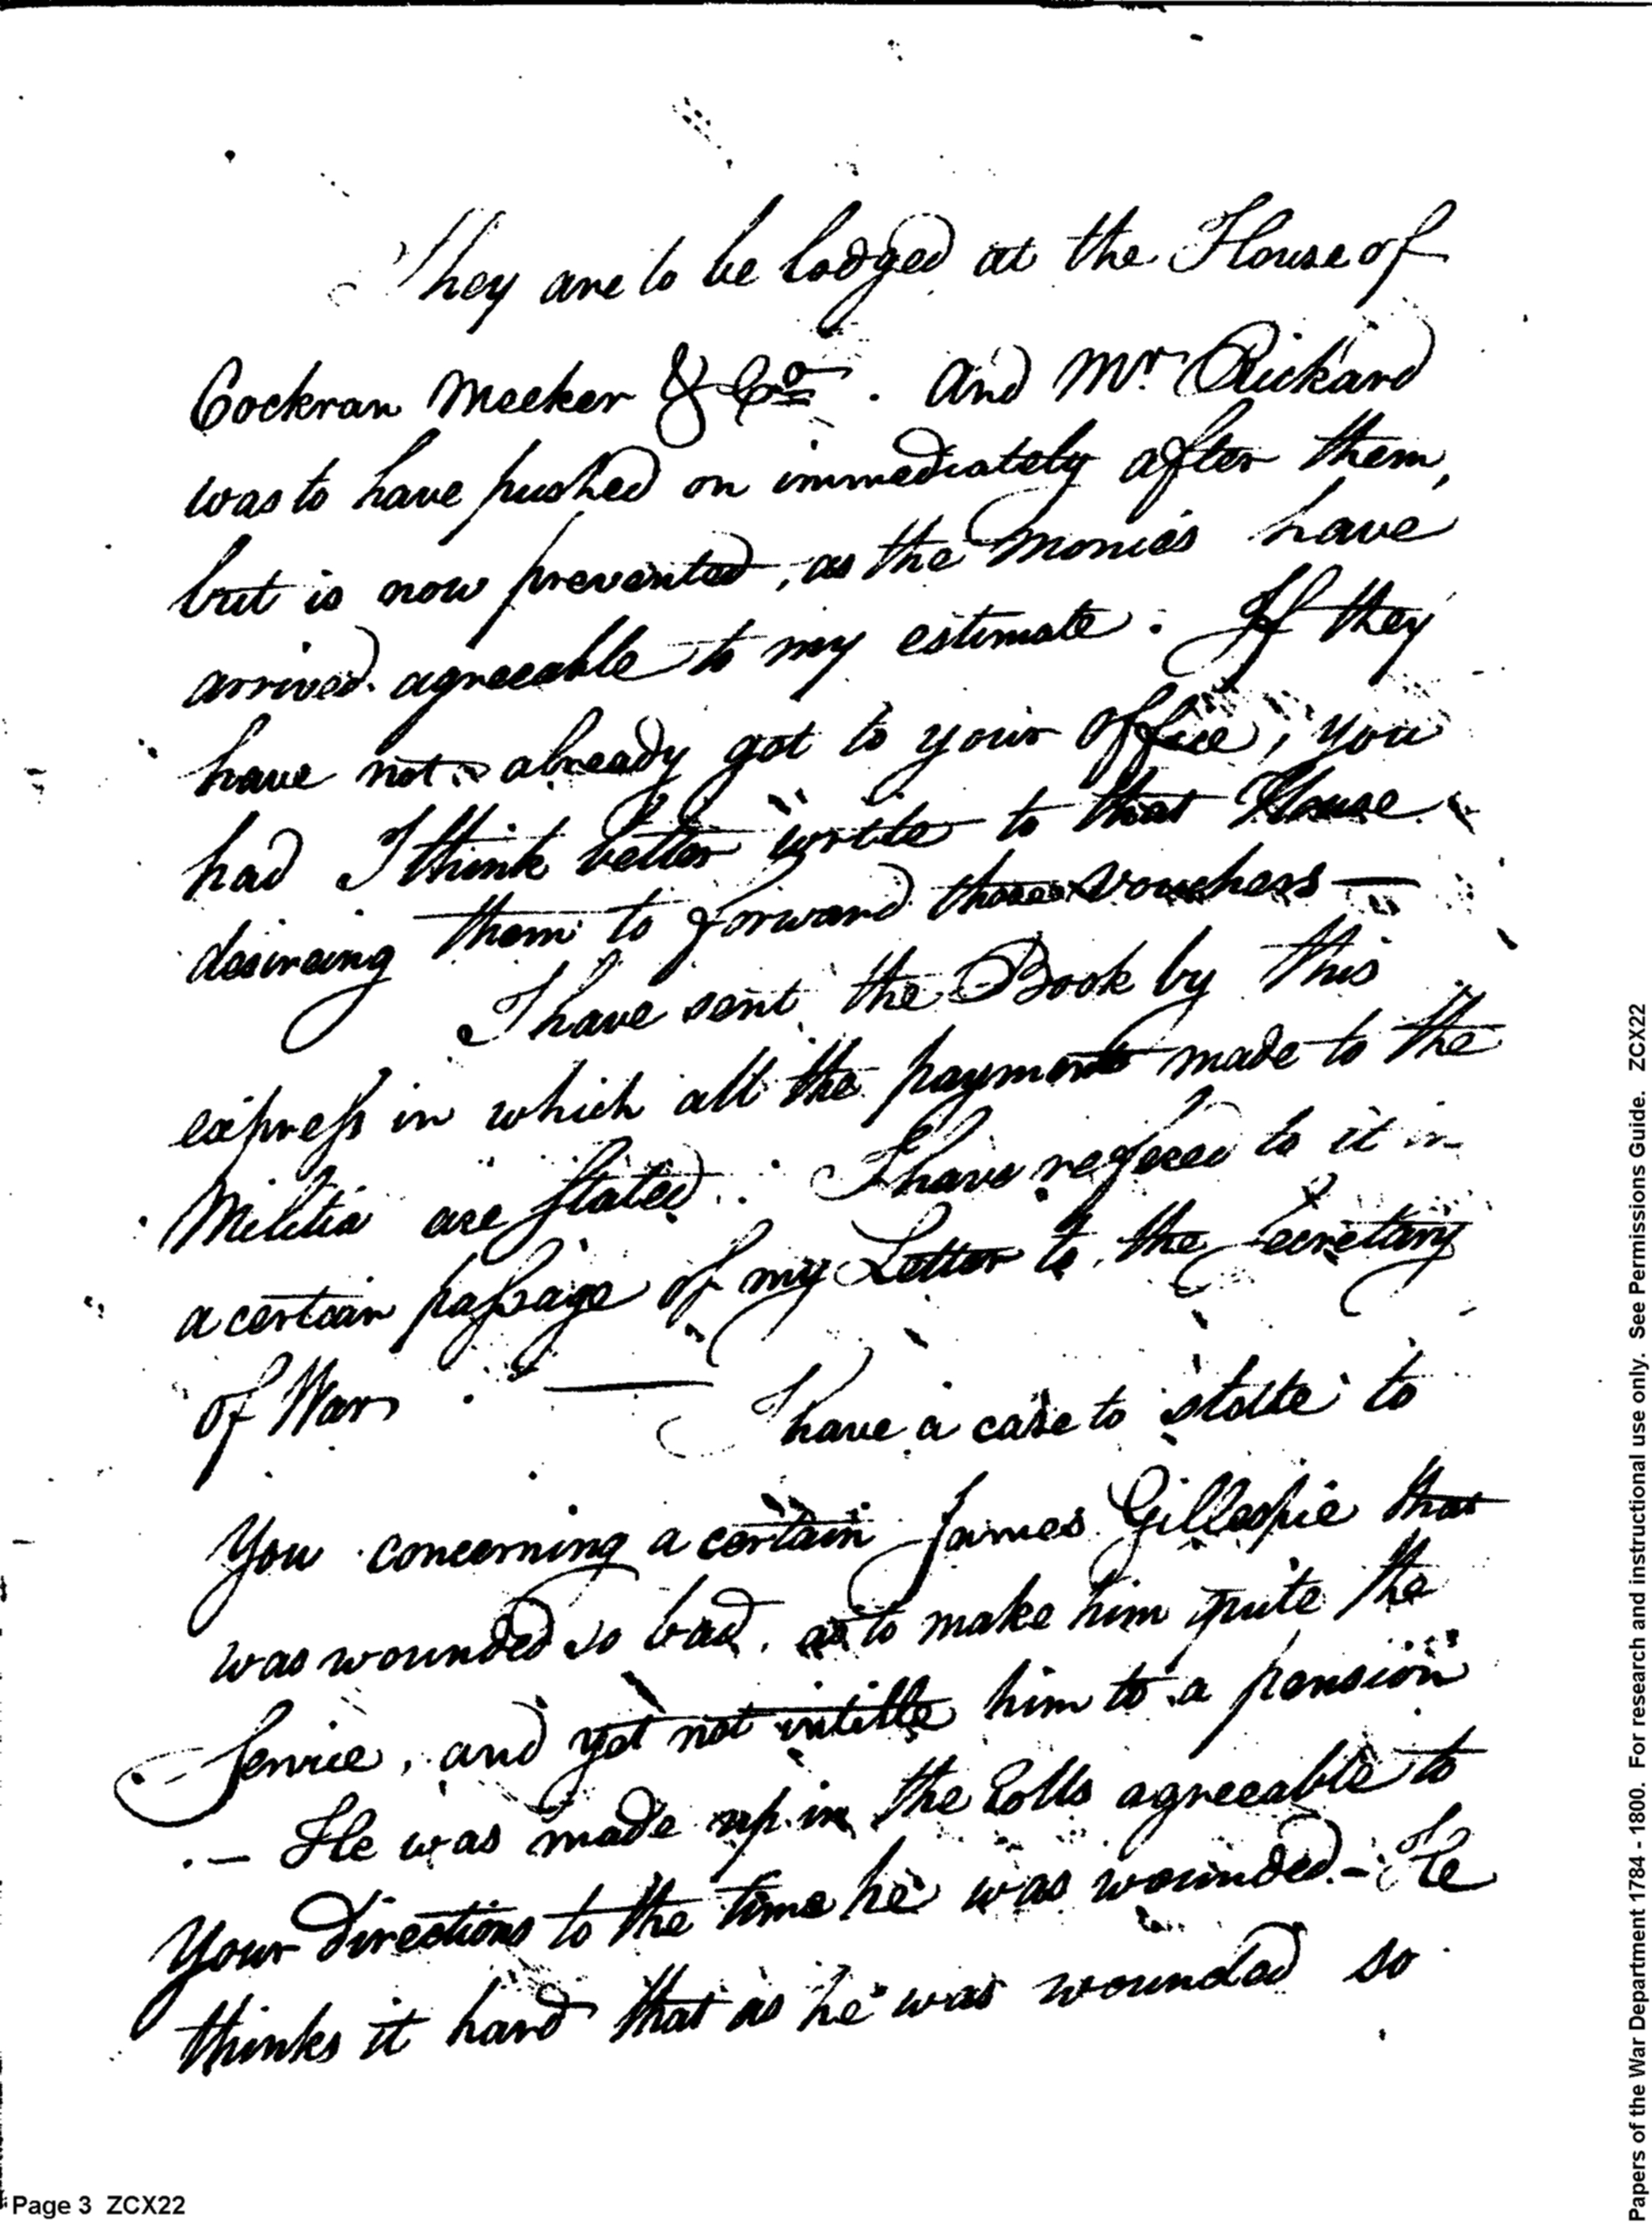 They are to be lodged at the House of
Cockran Meeker & Co. And Mr. Rickard
was to have pushed on immediately after them,
but is now prevented, as the monies have
arrived agreeable to my estimate. If they
have not already got to your office, you
had I think better write to that House
desireing them to forward those vouchers —
I have sent the Book by this
express in which all the payments made to the
Militia are stated. I have refered to it in
a certain passage of my Letter to the Secretary
of War. — I have a case to state to
You concerning a certain James Gillespie that
was wounded so bad, as to make him quite the
Service, and yet not intitle him to a pension
. — He was made up in the Rolls agreeable to
Your directions to the time he was wounded. — He
thinks it hard that as he was wounded so
Page 3 ZCX22
Papers of the War Department 1784 - 1800. For research and instructional use only. See Permissions Guide. ZCX22